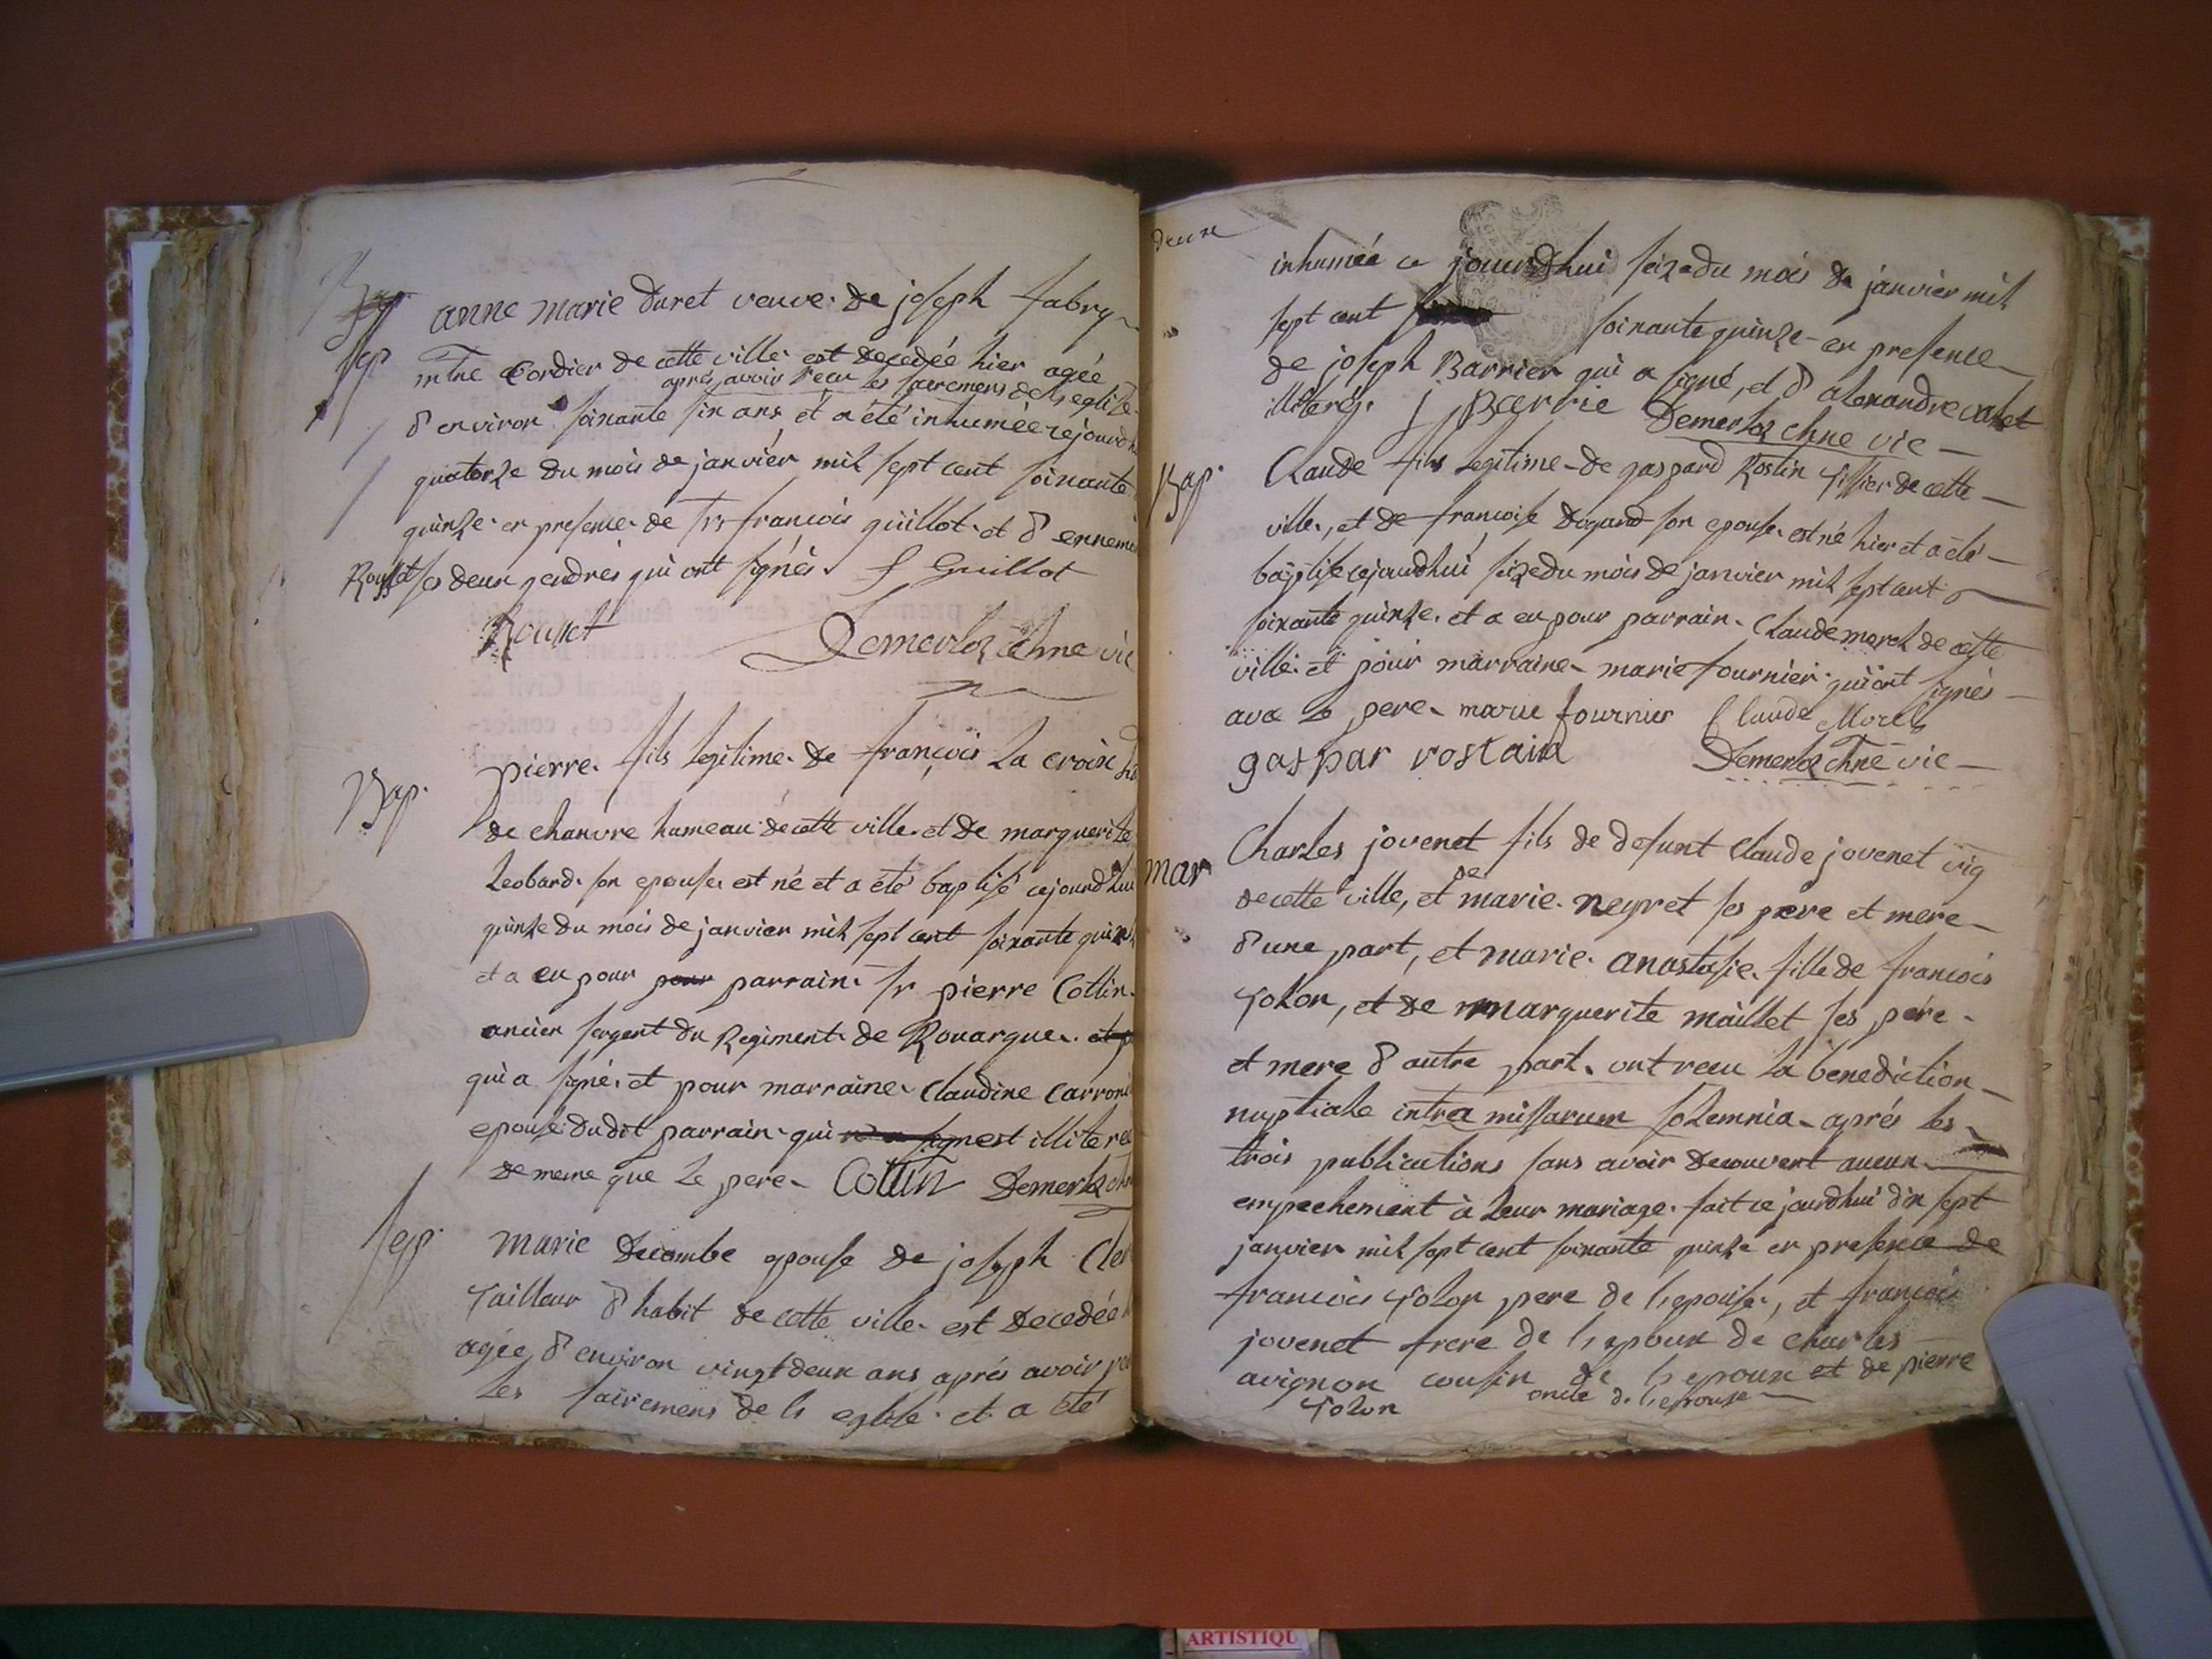 Bap
Sep
anne marie duret veuve de joseph fabry
mtre Cordier de cette ville est decedée hier agée
aprés avoir recu les sacremens de l'eglise
d'environ soixante six ans et a été inhumée cejourd'hu
quatorze du mois de janvier mil sept cent soixante
quinze en presence de srs francois guillot et d'ennemi
Rousset ses deux gendres qui ont signés f Guillot
Rousset Demerloz chne vic
Bap.
pierre fils legitime de françois la croix
de chanvre hameau de cette ville et de marguerite
Leobard son epouse est né et a été baptisé cejourd'hui
quinze du mois de janvier mil sept cent soixante quinz
et a eu pour pour parrain sr pierre Collin
ancien sergent du Regiment de Rouargue et p
qui a signé et pour marraine Claudine Carron
epouse dudit parrain qui est illiterée
de meme que le pere Collin Demerloz chn
Sep.
marie decombe epouse de joseph Cler
tailleur d'habit de cette ville est decedée
agée d'environ vingt deux ans aprés avoir re
les sacremens de l'eglise et a été
deux
inhumée ce jourdhui seize du mois de janvier mil
sept cent soixante quinze en presence
de joseph Barrier qui a signé, et d'alexandre
illiterés. j Barrie Demerloz chne vic
Bap.
Claude fils legitime de gaspard Rostin tissier de cette
ville, et de francoise dogand son epouse est né hier et a été
baptisé cejourdhui seize du mois de janvier mil sept cent
soixante quinze et a eu pour parrain Claude morel de cette
ville et pour marraine marie fournier qui ont signés
avec le pere marie fournier Claude Morel
gaspar rostaind Demerloz chne vic
mar
Charles jovenet fils de defunt Claude jovenet vig
de
de cette ville, et marie neyret ses pere et mere
d'une part, et marie anastasie fille de francois
tolon, et de marguerite maillet ses pére
et mere d'autre part ont recu la benediction
nuptiale intra missarum solemnia aprés les
trois publications sans avoir decouvert aucun
empechement à leur mariage fait ce jourdhui dix sept
janvier mil sept cent soixante quinze en presence de
francois tolon pere de l'epouse, et francois
jovenet frere de l'epoux de charles
avignon cousin de l'epoux et de pierre
tolon oncle de l'epouse
ARTISTIQU